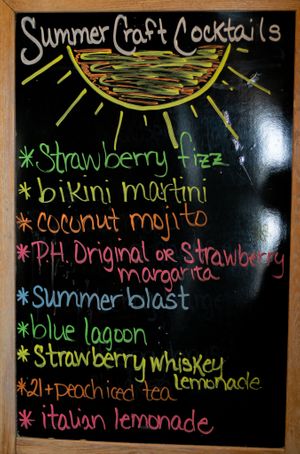 Summer Craft Cocktails
*Strawberry fizz
*bikini martini
*coconut mojito
*P.H. Original or Strawberry
margarita
*Summer blast
*blue lagoon
*Strawberry whiskey
lemonade
*21+ peach iced tea
*italian lemonade